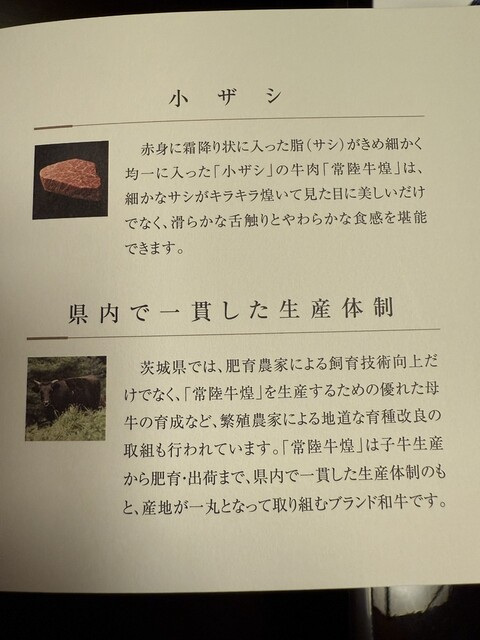 小ザシ
赤身に霜降り状に入った脂(サシ)がきめ細かく
均一に入った「小ザシ」の牛肉「常陸牛煌」は、
細かなサシがキラキラ煌いて見た目に美しいだけ
でなく、滑らかな舌触りとやわらかな食感を堪能
できます。
県内で一貫した生産体制
茨城県では、肥育農家による飼育技術向上だ
けでなく、「常陸牛煌」を生産するための優れた母
牛の育成など、繁殖農家による地道な育種改良の
取組も行われています。「常陸牛煌」は子牛生産
から肥育・出荷まで、県内で一貫した生産体制のも
と、産地が一丸となって取り組むブランド和牛です。